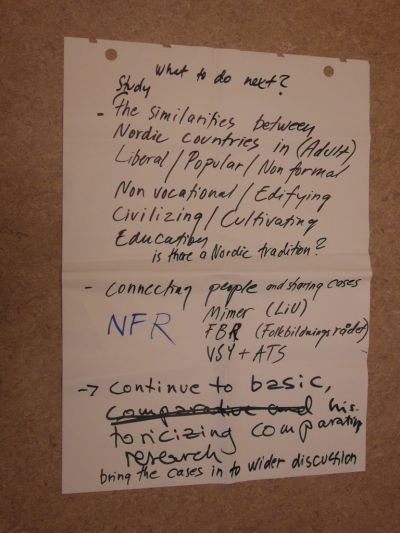 what to do next?
Study
- The similarities between
Nordic countries in (Adult)
Liberal / Popular / Non formal
Non vocational / Edifying
Civilizing / Cultivating
Education
is there a Nordic tradition?
- connecting people and sharing cases
Mimer (LiU)
NFR FBR (Folkbildningsrådet)
VSY + ATS
-> continue to basic,
comparative and his-
toricizing comparative
research
bring the cases in to wider discuchion